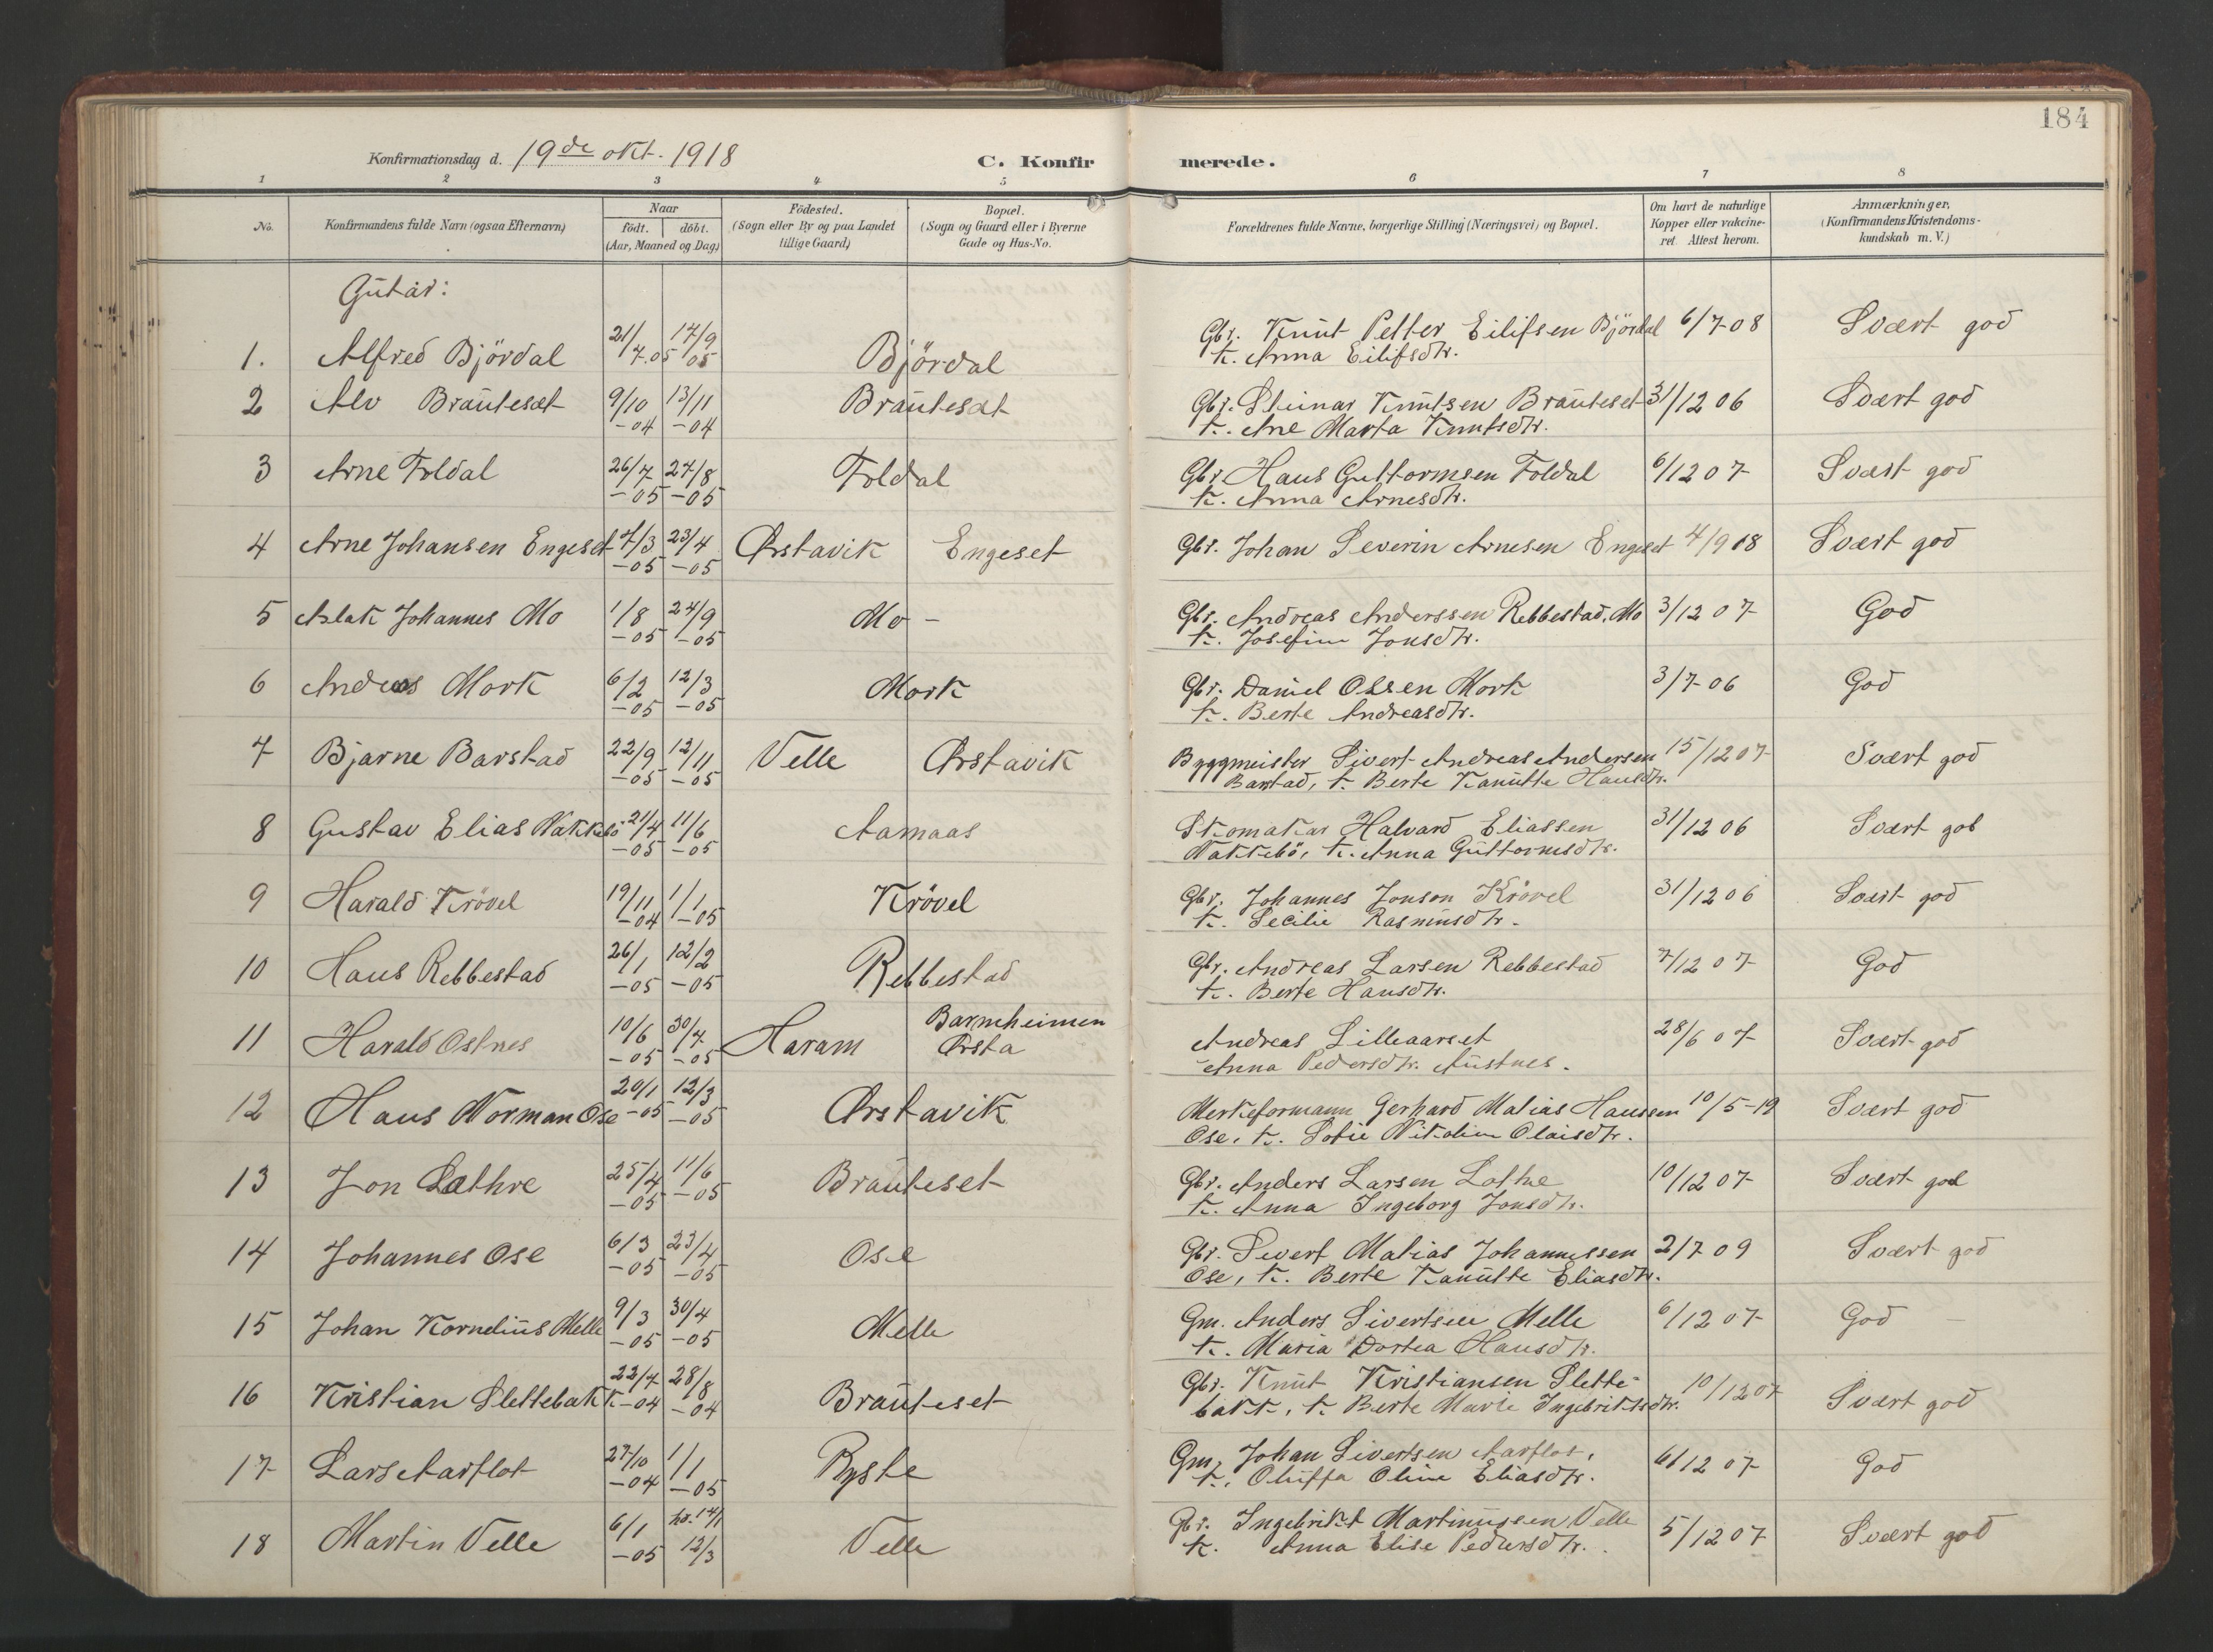 184
Konfirmationsdag d. 19de okt. 1918
C. Konfirmerede.
1 2 3 4 5 6 7 8
No. Konfirmandens fulde Navn (ogsaa Efternavn) Naar födt. döbt. (Aar, Maaned og Dag) Födested. (Sogn eller By og paa Landet tillige Gaard) Bopæl. (Sogn og Gaard eller i Byerne Gade og Hus-No. Forældrenes fulde Navne, borgerlige Stilling (Næringsvei) og Bopæl. Om havt de naturlige Kopper eller vakcineret. Attest herom. Anmærkninger, (Konfirmandens Kristendomskundskab m. V.)
Gutar:
1. Alfred Björdal 21/7.05 17/9 05 Björdal Gbr. Knut Petter Eilifsen Björdal 6/7-08 Svært god
k. Anna Eilifsdtr.
2 Alv Brauteset 9/10 -04 13/11 -04 Brauteset Gbr. Steinar Knutsen Brauteset 31/12 06 Svært god
k. Ane Marta Knutsdtr.
3 Arne Foldal 26/7 -05 27/8 -05 Foldal Gbr Hans Guttormsen Foldal 6/12 07 Svært god
k. Anna Arnesdtr.
4 Arne Johansen Engeset 7/3 -05 23/4 -05 Ørstavik Engeset Gbr. Johan Severin Arnesen Engeset 4/9 18 Svært god
5 Aslak Johannes Mo 1/8 -05 24/9 -05 Mo - Gbr. Andreas Anderssen Rebbestad, Mo 3/12 07 God
k. Josefine Jonsdtr.
6 Andreas Mork 6/2 -05 12/3 -05 Mork Gbr. Daniel Olsen Mork 3/7-06 God
k. Berte Andreasdtr.
7 Bjarne Barstad 22/9 -05 12/11 -05 Velle Ørstavik Byggmeister Sivert Andreas Andersen 15/12 07 Svært god
Barstad, k. Berte Kanutte Hansdtr.
8 Gustav Elias Nakkebö 21/4 -05 11/6 -05 Aamaas Skomakar Halvard Eliassen 31/12 06 Svært god
Nakkebö, k. Anna Guttormsdtr.
9 Harald Krövel 19/11 -04 1/1 -05 Krövel Gbr. Johannes Jonson Krövel 31/12 06 Svært god
k. Secilie Rasmusdtr.
10 Hans Rebbestad 26/1 -05 12/2 -05 Rebbestad Gbr. Andreas Larsen Rebbestad 7/12 07 God
k. Berte Hansdtr.
11 Harald Ostnes 10/6 -05 30/7 -05 Haram Barneheimen Ørsta Andreas Lilleaarset 28/6 07 Svært god
Anna Pedersdtr. Austnes.
12 Hans Norman Ose 20/1 -05 12/3 -05 Ørstavik Merkeformann Gerhard Matias Hanssen 10/5-19 Svært god
Ose, k. Sofie Nikoline Olaisdtr.
13 Jon Lothre 25/4 -05 11/6 -05 Brauteset Gbr. Anders Larsen Lothe 10/12 07 Svært god
k. Anna Ingeborg Jonsdtr.
14 Johannes Ose 6/3 -05 23/4 -05 Ose Gbr. Sivert Matias Johannessen 2/7 09 Svært god
Ose, k. Berte Kanutte Eliasdtr.
15 Johan Kornelius Melle 9/3 -05 30/4 -05 Melle Gm. Anders Sivertsen Melle 6/12 07 God -
k. Maria Dortea Hansdtr.
16 Kristian Slettebakk 22/7 -04 28/8 -04 Brauteset Gbr. Knut Kristiansen Slette- 10/12 07 Svært god
bakk, k. Berte Marie Ingebriktsdtr.
17 Lars Aarflot 27/10 -04 1/1 -05 Ryste Gm. Johan Sivertsen Aarflot, 6/12 07 God
k. Oluffa Oline Eliasdtr.
18 Martin Velle 6/1 -05 hd. 14/1 12/3 Velle Gbr. Ingebrikt Martinussen Velle 5/12 07 Svært god
k. Anna Elise Pedersdtr.